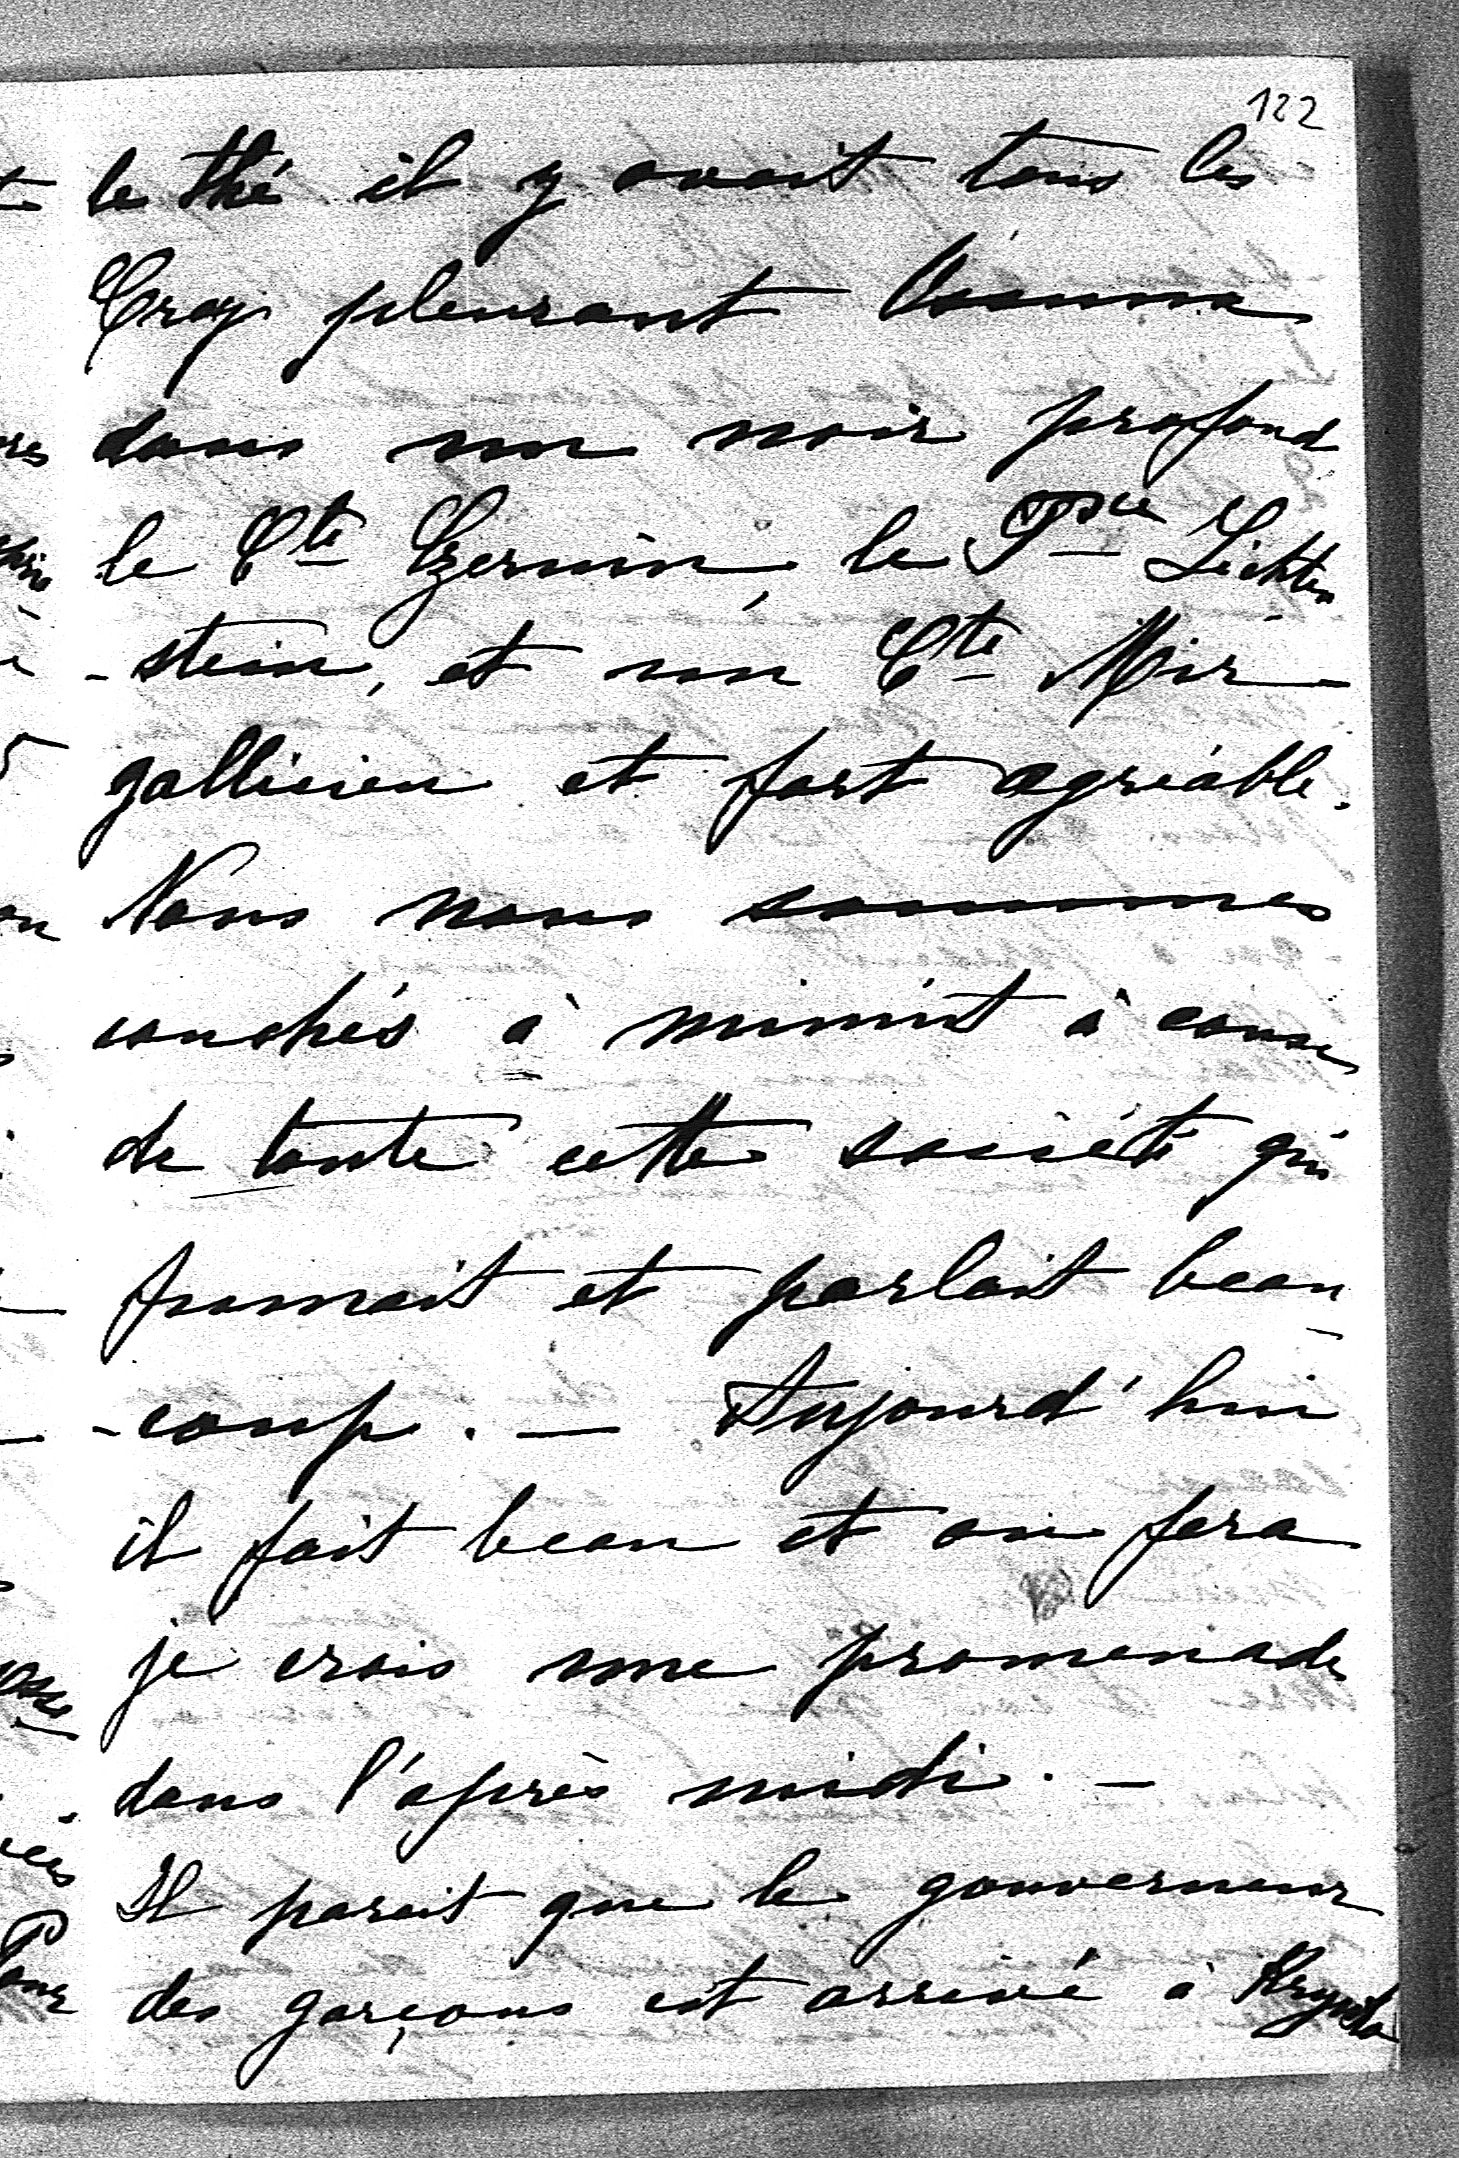 122
le thé il y avait tous les
Croy pleurant Osanna
dans un noir profond
le Cte Czernin, le Pce Lichten
-stein, et un Cte Mir
gallicien et fort agréable.
Nous nous sommes
couchés à minuit à cause
de toute cette société qui
fumait et parlait beau
-coup. — Aujourd'hui
il fait beau et on fera
je crois une promenade
dans l'après midi. —
Il parait que le gouverneur
des garçons est arrivé à